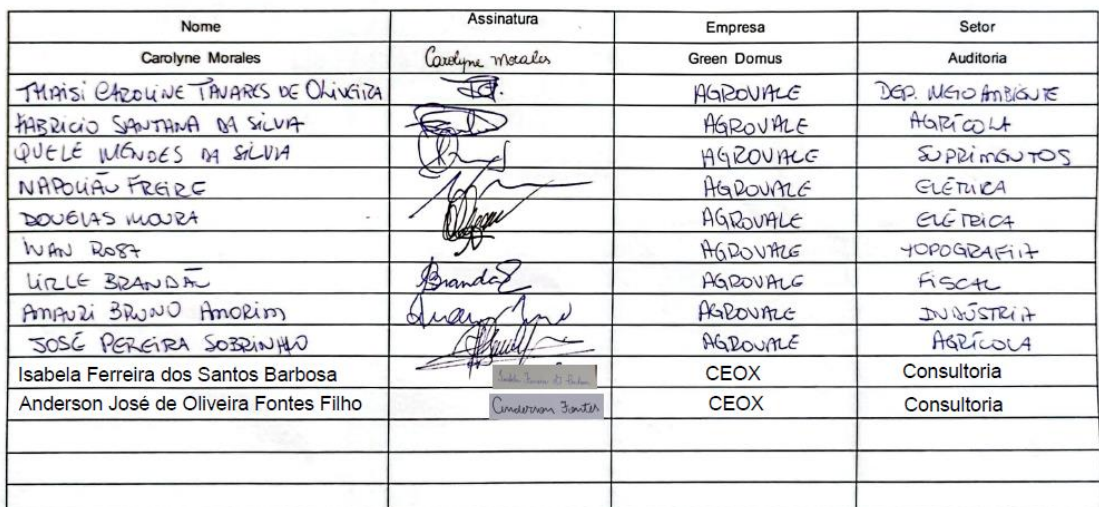 Nome Assinatura Empresa Setor
Carolyne Morales Carolyne Morales Green Domus Auditoria
THAISI CAROLINE TAVARES DE OLIVEIRA AGROVALE DEP. MEIO AMBIENTE
FABRICIO SANTANA DA SILVA AGROVALE AGRÍCOLA
QUELE MENDES DA SILVA AGROVALE SUPRIMENTOS
NAPOLIÃO FREIRE AGROVALE ELÉTRICA
DOUGLAS MOURA AGROVALE ELÉTRICA
IVAN AGROVALE TOPOGRAFIA
BRANDÃO Brandão AGROVALE FISCAL
AMAURI BRUNO AMORIM AGROVALE INDÚSTRIA
JOSÉ PEREIRA SOBRINHO AGROVALE AGRÍCOLA
Isabela Ferreira dos Santos Barbosa CEOX Consultoria
Anderson José de Oliveira Fontes Filho Anderson Fontes CEOX Consultoria